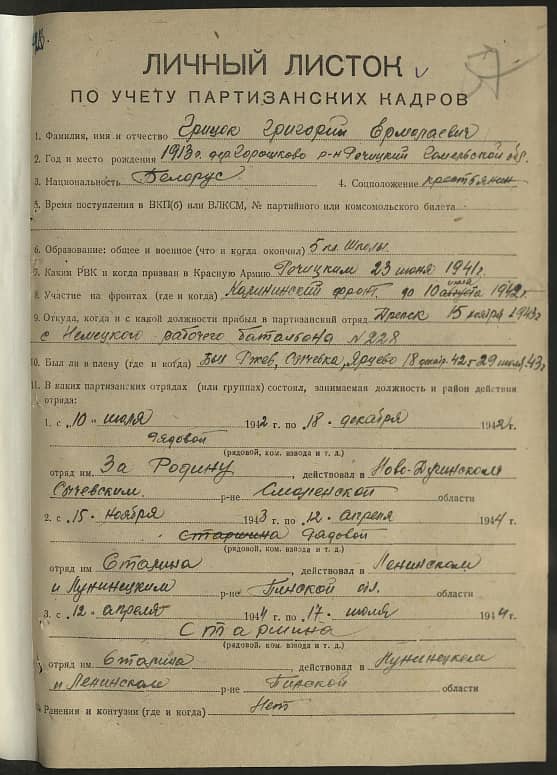 ЛИЧНЫЙ ЛИСТОК
ПО УЧЕТУ ПАРТИЗАНСКИХ КАДРОВ
1. Фамилия, имя и отчество Грицок Григорий Ермолаевич
2. Год и место рождения 1913 г. дер. Горошково р-н Речицкий Гомельской обл.
3. Национальность Белорус 4. Соцположение крестьянин
5. Время поступления в ВКП(б) или ВЛКСМ, № партийного или комсомольского билета
6. Образование: общее и военное (что и когда окончил) 5 кл. школы
7. Каким РВК и когда призван в Красную Армию Речицким 23 июня 1941 г.
8. Участие на фронтах (где и когда) Калининский фронт. до 10 августа июля 1942 г.
9. Откуда, когда и с какой должности прибыл в партизанский отряд 15 ноября 1943 г
с Немецкого рабочего батальона № 228
10. Был ли в плену (где и когда) Был Ржев, Сычевка, Ярцево 18 декабр. 42 г 29 июля 43 г
11. В каких партизанских отрядах (или группах) состоял, занимаемая должность и район действия
отряда:
1. с 10 июля 1942 г по 18 декабря 1942 г.
Рядовой
(рядовой, ком. взвода и т. д.)
отряд им. За Родину, действовал в Ново-Дугинском
Сычевским р-не Смоленской области
2. с 15 ноября 1943 г. по 12 апреля 1944 г.
Старшина Рядовой
(рядовой, ком. взвода и т. д.)
отряд им Сталина действовал в Ленинском
и Лунинецким р-не Пинской обл. области
3. с 12 апреля 1944 г. по 17 июля 1944 г.
Старшина
(рядовой, ком. взвода и т. д.)
отряд им. Сталина действовал в Лунинецкем
и Ленинском р-не Пинской области
Ранения и контузии (где и когда) Нет